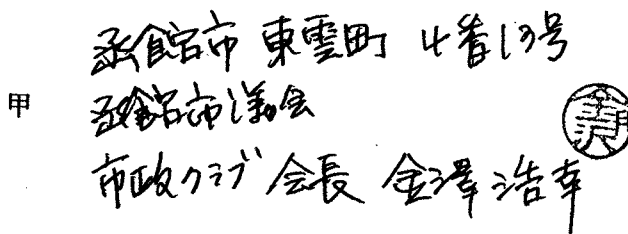 函館市 東雲町 4番13号
甲
函館市議会
市政クラブ 会長 金澤 浩幸
金沢